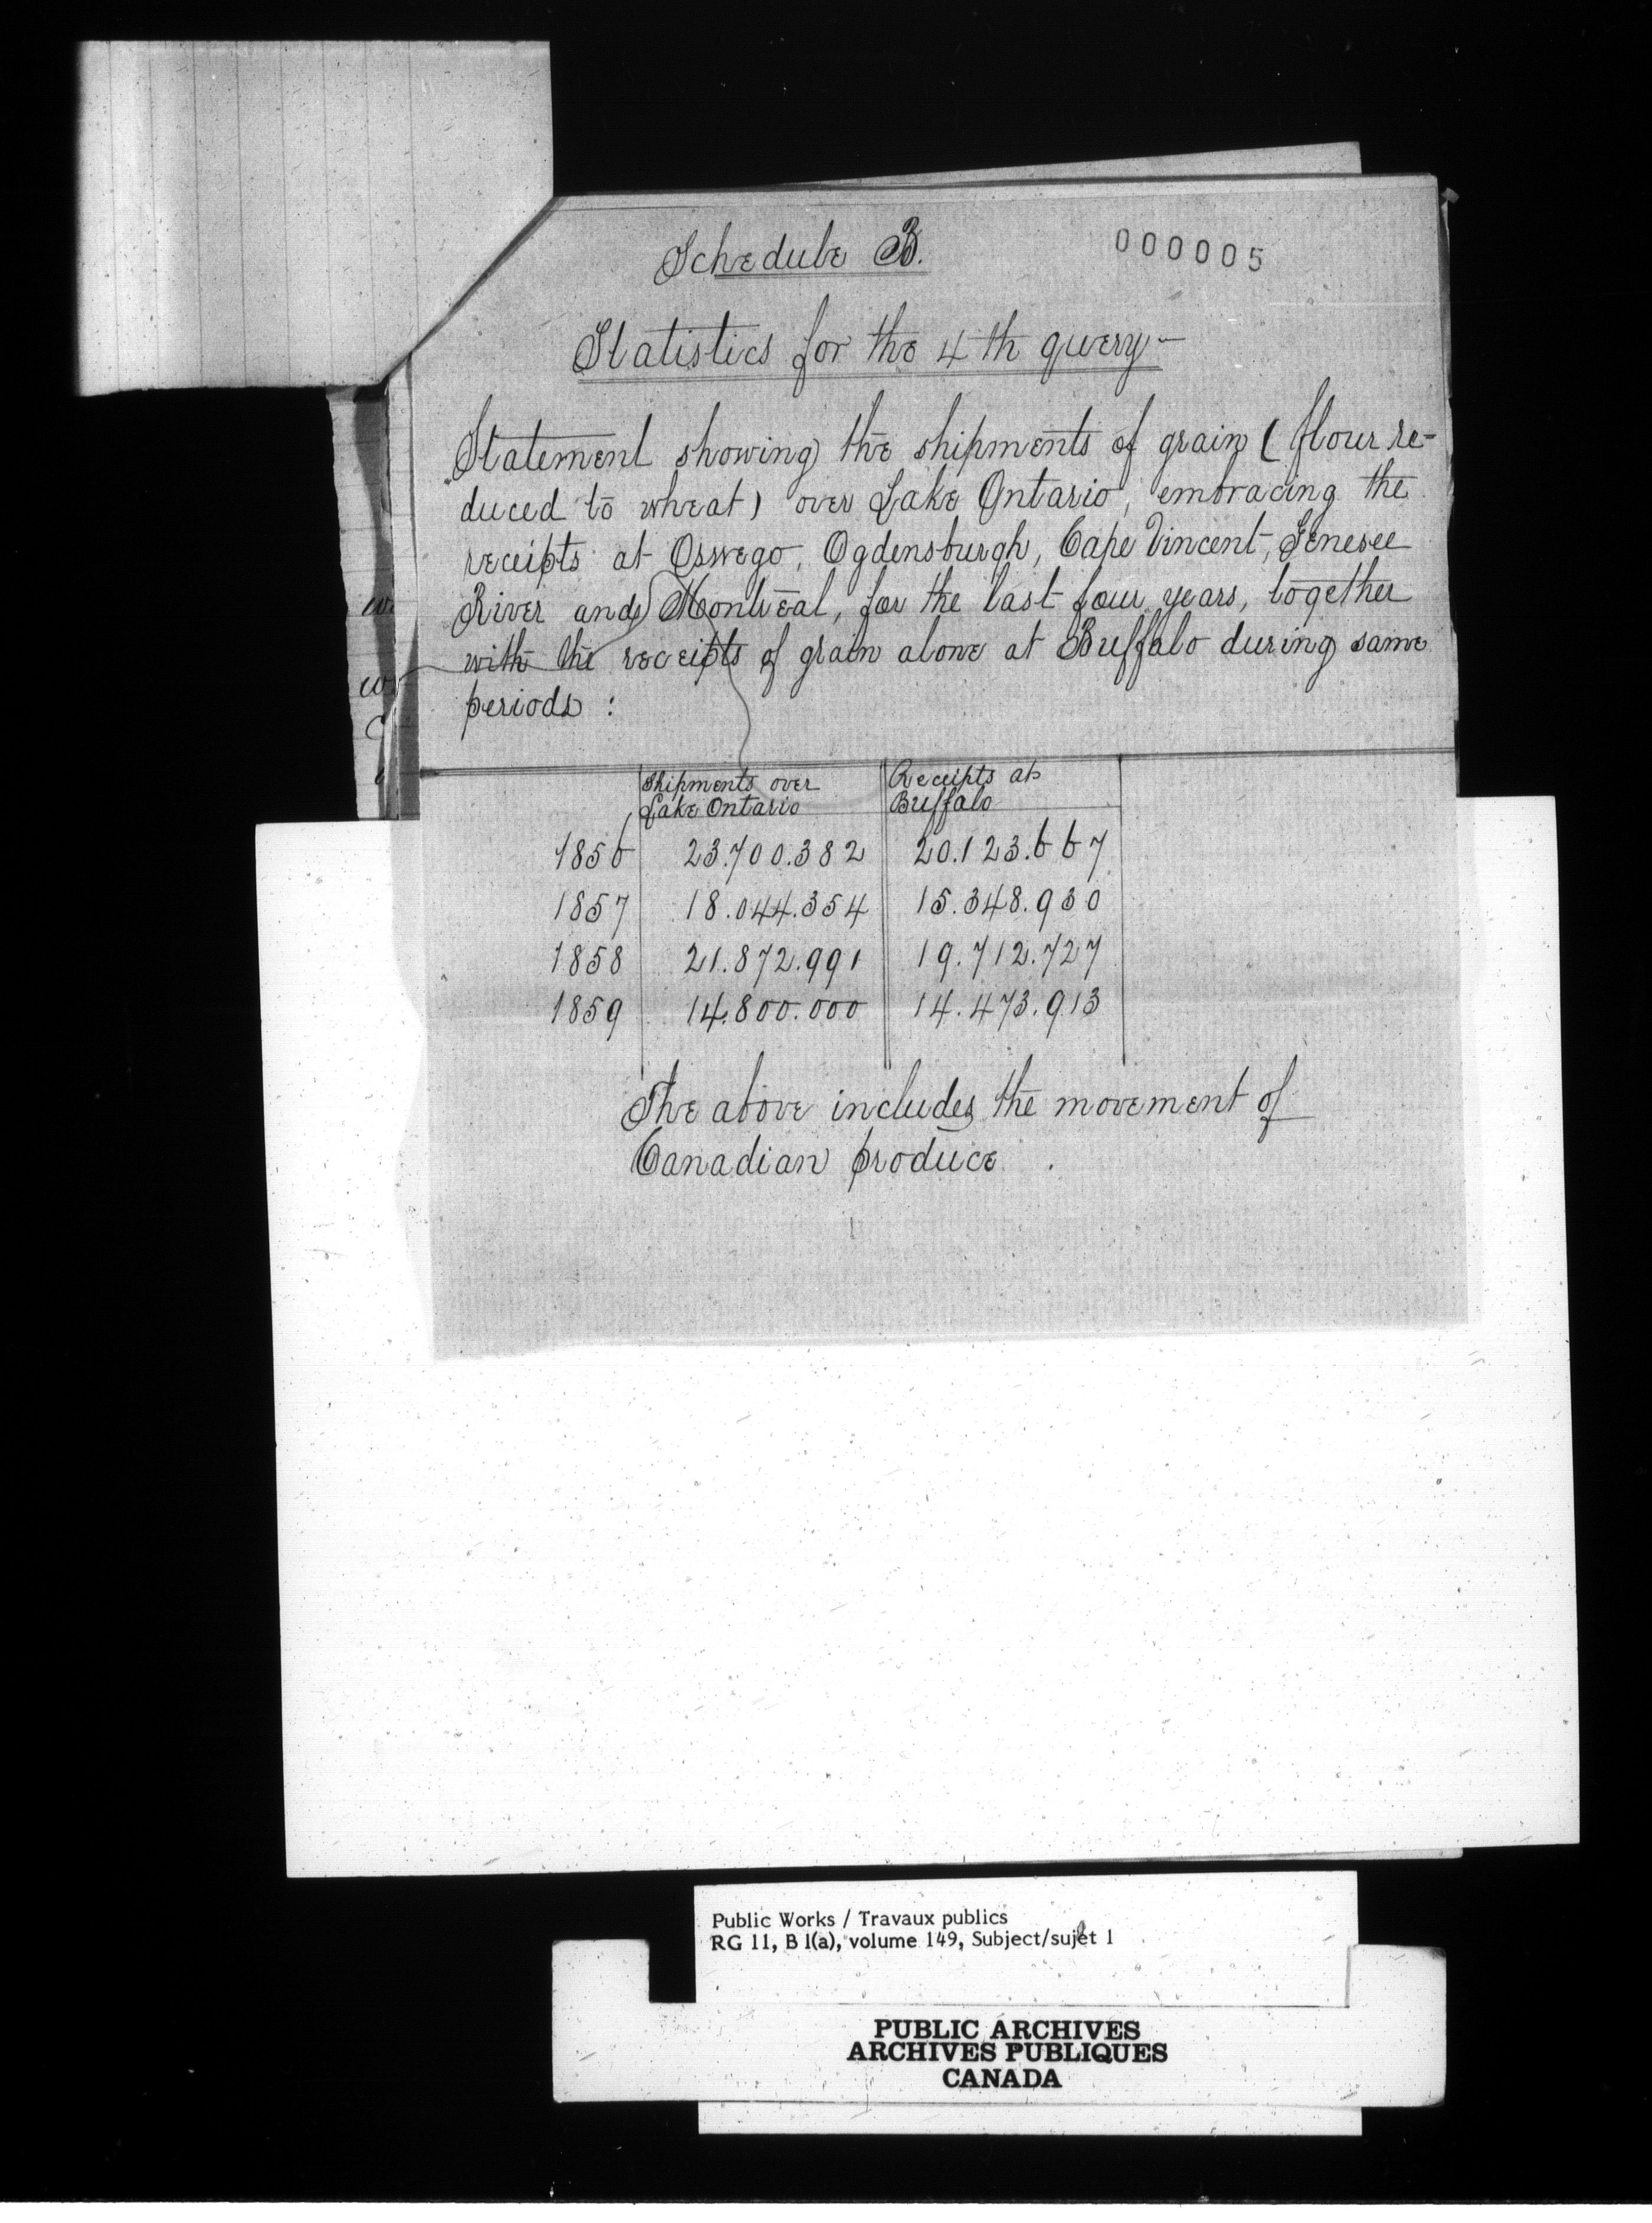 Schedule B.
000005
Statistics for the 4th query -
Statement showing the shipments of grain (flour re-
duced to wheat) over Lake Ontario, embracing the
receipts at Osswego, Ogdensburgh, Cape Vincent, Genesee
River and Montreal, for the last four years, together
with the receipts of grain alone at Buffalo during same
periods :
Shipments over
Lake Ontario
Receipts at
Buffalo
1856 23.700.382 20.123.667
1857 18.044.354 15.348.930
1858 21.872.991 19.712.727
1859 14.800.000 14.473.913
The above includes the movement of
Canadian produce .
Public Works / Travaux publics
RG 11, B 1(a), volume 149, Subject/sujet 1
PUBLIC ARCHIVES
ARCHIVES PUBLIQUES
CANADA